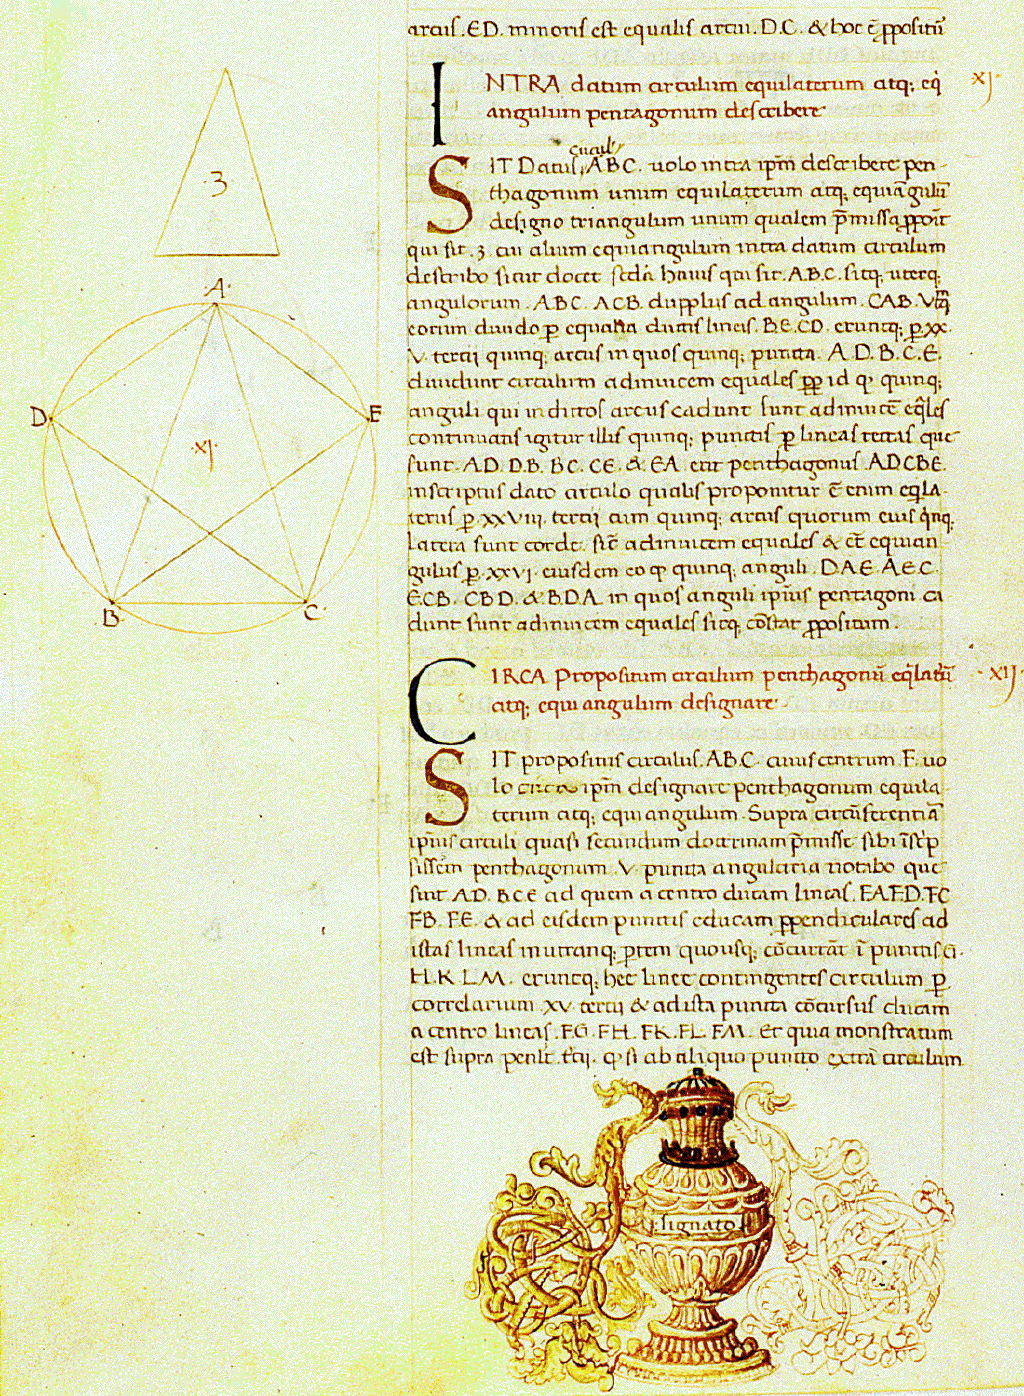 arcui .ED. minoris est equalis arcui .D.C. & hoc ē ꝓpositū
INTRA datum circulum equilaterum atq; eq̇
angulum pentagonum describere
XJ.
circul'
SIT Datus, A B C. uolo intra ip̄m describere pen-
thagonum unum equilaterum atq; equiāgulū
designo triangulum unum qualem p̄missa ꝓpoīt
qui sit .3. cui alium equiangulum intra datum circulum
describo sicut docet sed̄a huius qui sit .A.B.C. sitq; uterq;
angulorum .ABC. ACB. dupplus ad angulum .CAB. Vt̄ꝗ
eorum diuido ꝑ equalia ductis lineis. BE. CD. eruntq; ꝑ xx.
V. tertii quinq; arcus in quos quinq; puncta. A.D.B.C.E.
diuidunt circulum adinuicem equales ꝓꝑ id qꝫ quinq;
anguli qui in dictos arcus cadunt sunt adinuicē eq̄les
continuatis igitur illis quinq; punctis ꝑ lineas rectas que
sunt .AD. D.B. BC. CE. & EA. erit penthagonus .ADCBE.
inscriptus dato circulo qualis proponitur ē enim eq̇la-
terus ꝑ .XXVIII. tertii cum quinq; arcus quorum eius q̇nq;
latera sunt corde. sīt adinuicem equales & ēt equian
gulus ꝑ .XXVJ. eiusdem eo qꝫ quinq; anguli. DAE. AEC.
ECB. CBD. & BDA. in quos anguli ipsius pentagoni ca
dunt sunt adinuicem equales sicq; cōstat ꝓpositum
CIRCA Propositum circulum penthagonū eq̇latū
atq; equiangulum designare
XIJ
SIT propositus circulus. A.B.C. cuius centrum .F. uo
lo circa ip̄m designare penthagonum equila
terum atq; equiangulum. Supra circūferentiā
ipsius circuli quasi secundum doctrinam p̄misse sibi īscp
sissem penthagonum .V. puncta angularia notabo que
sunt .AD. B.C.E ad quem a centro ducam lineas. FA.F.D.FC
FB. FE. & ad eisdem punctis educam ꝑpendiculares ad
istas lineas in utranq; ꝑtem quousq; cōcurrāt ī punctis G.
H.K.L.M. eruntq; hec linee contingentes circulum ꝑ
correlarium .XV. tertii & ad ista puncta cōcursus ducam
a centro lineas .FG. FH. FK. FL. FM. Et quia monstratum
est supra penlt̄. t̄cii. qꝫ si ab aliquo puncto extra circulum
.3.
A.
D.
E
.XJ.
B.
C.
signato